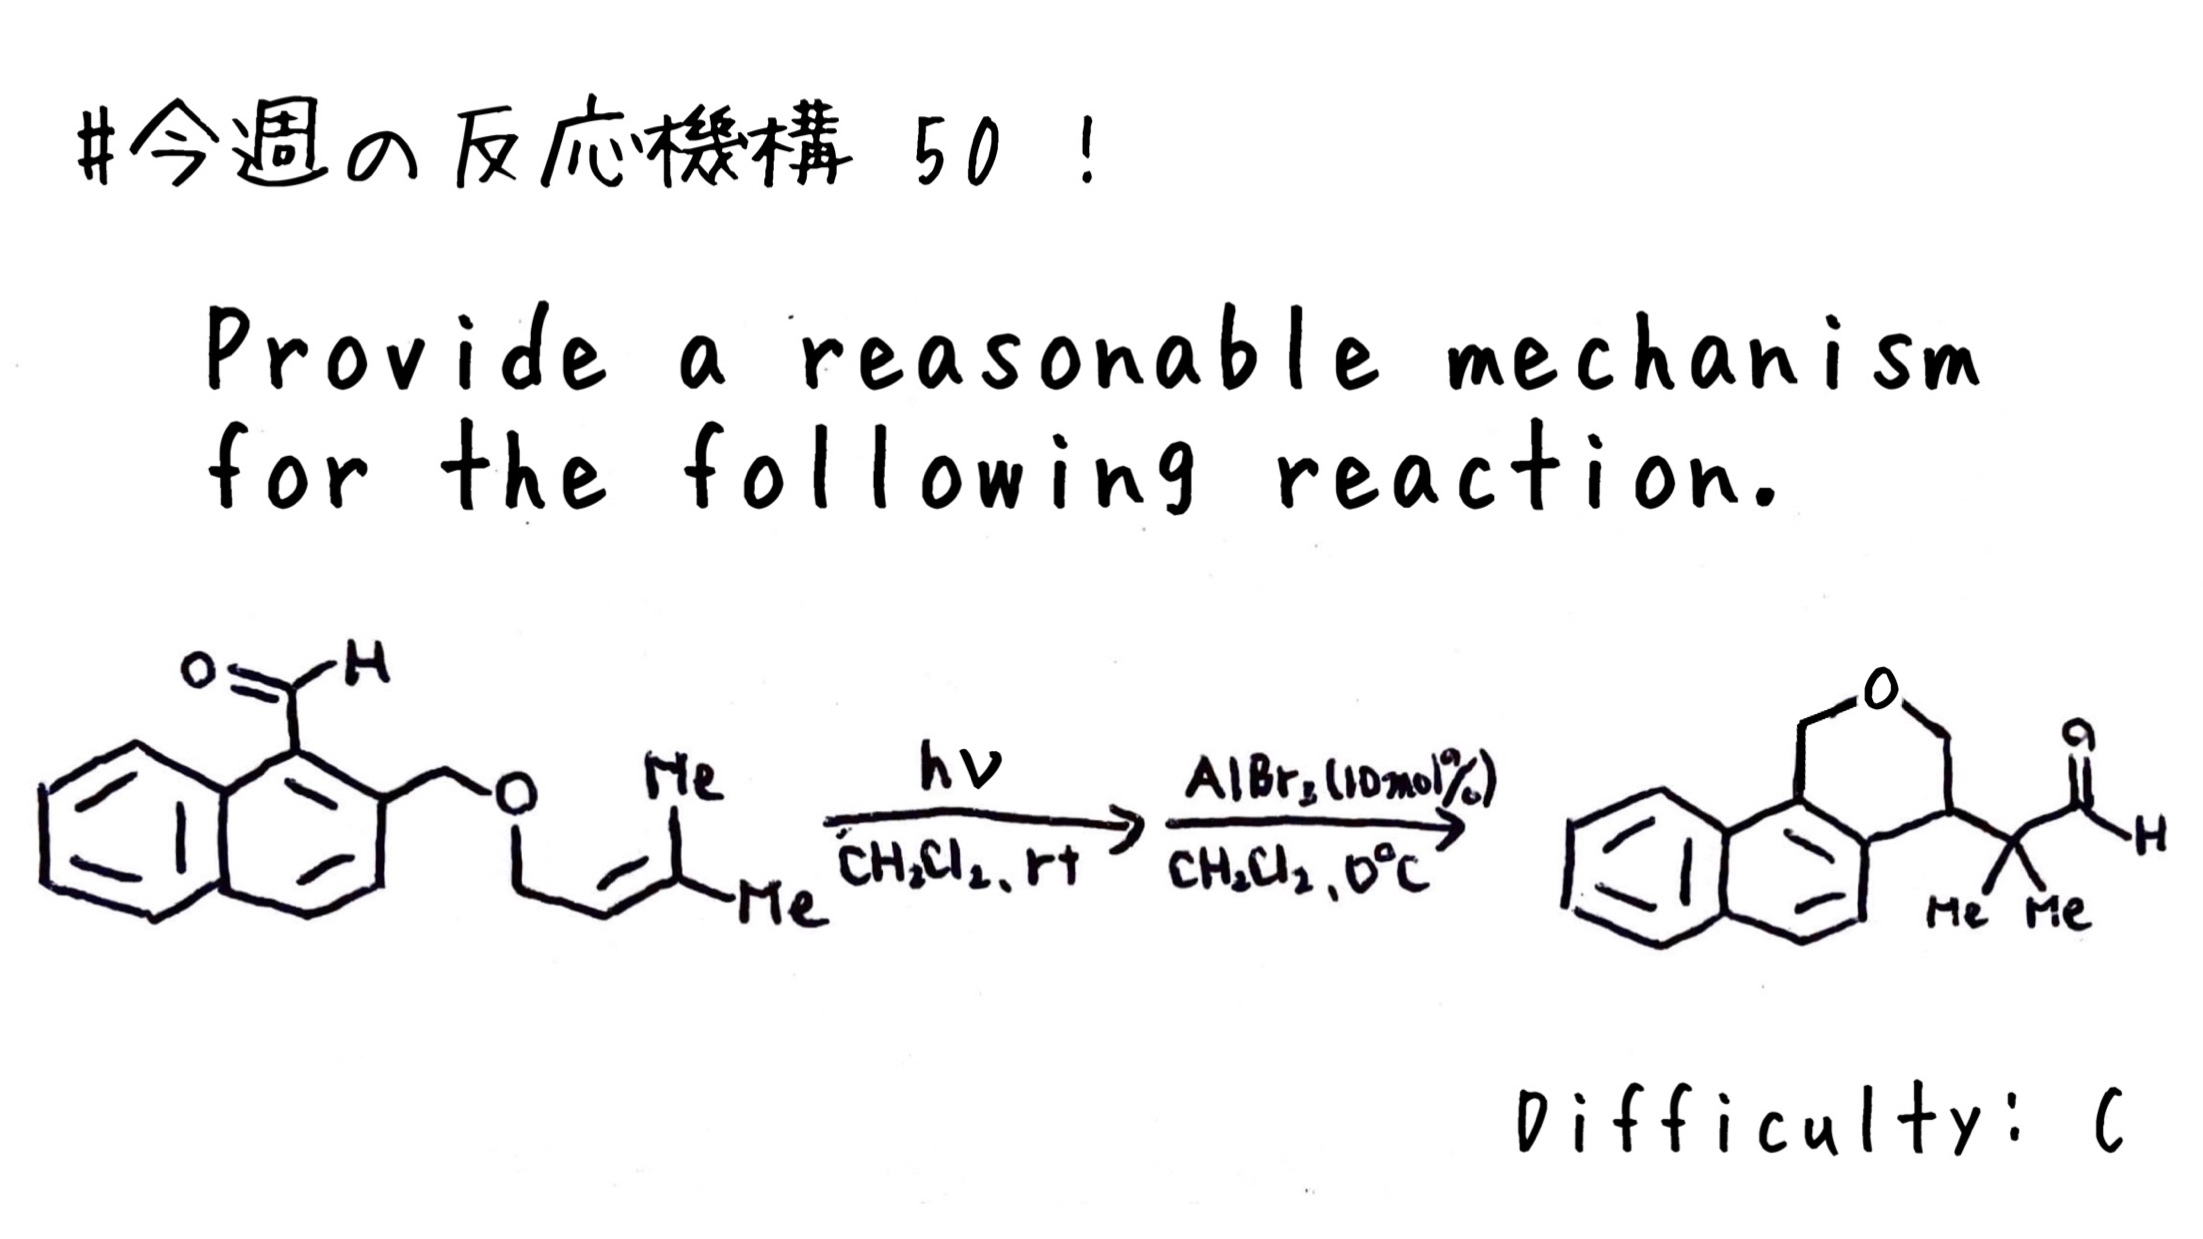 #今週の反応機構 50 !
Provide a reasonable mechanism
for the following reaction.
O H
O Me Me
hν
CH₂Cl₂, rt
AlBr₃ (10 mol%)
CH₂Cl₂, 0°C
O O H
Me Me
Difficulty: C